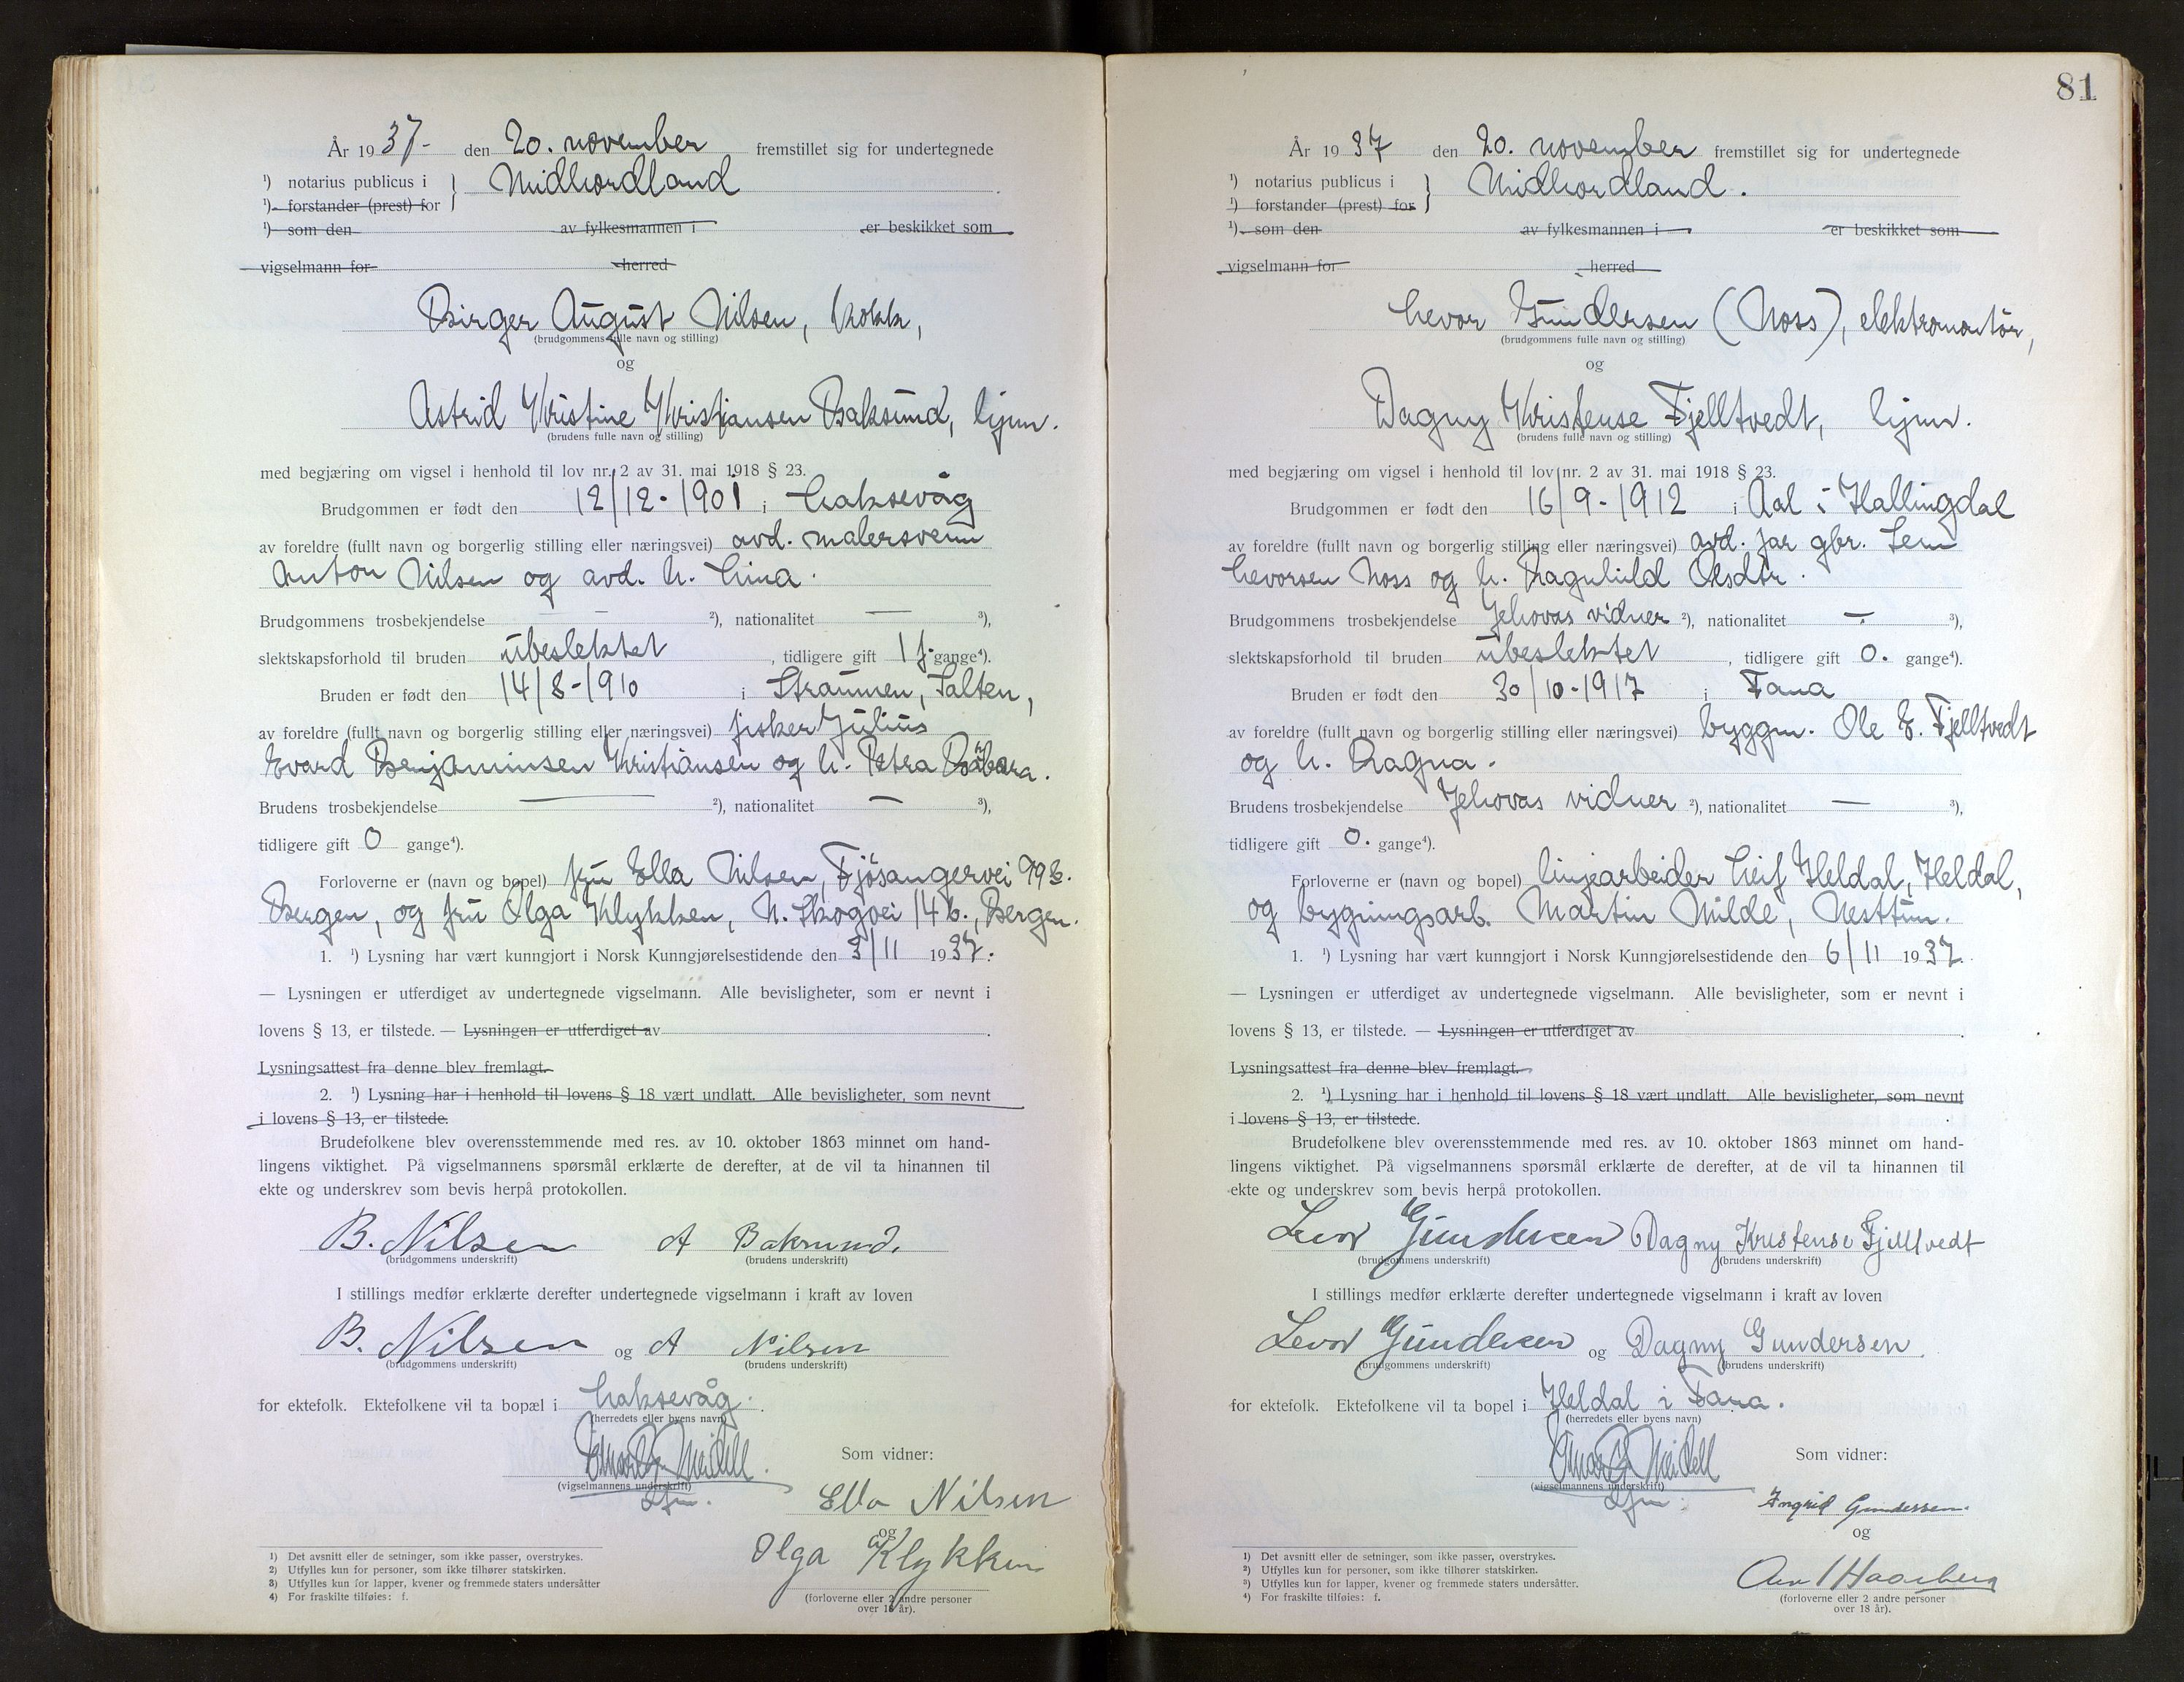 År 1937- den 20. november fremstillet sig for undertegnede
¹) notarius publicus i } Midhordland
¹) forstander (prest) for
¹) som den av fylkesmannen i er beskikket som
vigselmann for herred
Birger August Nilsen, kokk,
(brudgommens fulle navn og stilling)
og
Astrid Kristine Kristiansen Baksund, hjm.
(brudens fulle navn og stilling)
med begjæring om vigsel i henhold til lov nr. 2 av 31. mai 1918 § 23.
Brudgommen er født den 12/12-1901 i Laksevåg
av foreldre (fullt navn og borgerlig stilling eller næringsvei) avd. malersvenn
Anton Nilsen og avd. h. Lina.
Brudgommens trosbekjendelse — ²), nationalitet — ³),
slektskapsforhold til bruden ubeslektet, tidligere gift 1 f. gange⁴).
Bruden er født den 14/8-1910 i Straumen, Salten,
av foreldre (fullt navn og borgerlig stilling eller næringsvei) fisker Julius
Evard Benjaminsen Kristiansen og h. Petra Barbara.
Brudens trosbekjendelse — ²), nationalitet — ³),
tidligere gift 0 gange⁴).
Forloverne er (navn og bopel) fru Ella Nilsen, Fjösangervei 79 B.
Bergen, og fru Olga Klykken, N. Skogvei 14 b., Bergen.
1. ¹) Lysning har vært kunngjort i Norsk Kunngjørelsestidende den 3/11 1937.
— Lysningen er utferdiget av undertegnede vigselmann. Alle bevisligheter, som er nevnt i
lovens § 13, er tilstede. — Lysningen er utferdiget av
Lysningsattest fra denne blev fremlagt.
2. ¹) Lysning har i henhold til lovens § 18 vært undlatt. Alle bevisligheter, som nevnt
i lovens § 13, er tilstede.
Brudefolkene blev overensstemmende med res. av 10. oktober 1863 minnet om hand-
lingens viktighet. På vigselmannens spørsmål erklærte de derefter, at de vil ta hinannen til
ekte og underskrev som bevis herpå protokollen.
B. Nilsen A Baksund.
(brudgommens underskrift) (brudens underskrift)
I stillings medfør erklærte derefter undertegnede vigselmann i kraft av loven
B. Nilsen og A Nilsen
(brudgommens underskrift) (brudens underskrift)
for ektefolk. Ektefolkene vil ta bopæl i Laksevåg.
(herredets eller byens navn)
Meidell
(vigselmannens underskrift)
Som vidner:
Ella Nilsen
og
Olga Klykken
(forloverne eller 2 andre personer
over 18 år).
1) Det avsnitt eller de setninger, som ikke passer, overstrykes.
2) Utfylles kun for personer, som ikke tilhører statskirken.
3) Utfylles kun for lapper, kvener og fremmede staters undersåtter
4) For fraskilte tilføies: f.
81
År 1937 den 20. november fremstillet sig for undertegnede
¹) notarius publicus i } Midhordland.
¹) forstander (prest) for
¹) som den av fylkesmannen i er beskikket som
vigselmann for herred
Levor Gundersen (Noss), elektromontör,
(brudgommens fulle navn og stilling)
og
Dagny Kristense Fjelltvedt, hjm.
(brudens fulle navn og stilling)
med begjæring om vigsel i henhold til lov nr. 2 av 31. mai 1918 § 23.
Brudgommen er født den 16/9-1912 i Aal i Hallingdal
av foreldre (fullt navn og borgerlig stilling eller næringsvei) avd. gbr.
Levorsen Noss og h. Ragnhild Olsdtr.
Brudgommens trosbekjendelse Jehovas vidner ²), nationalitet — ³),
slektskapsforhold til bruden ubeslektet, tidligere gift 0. gange⁴).
Bruden er født den 30/10-1917 i Fana
av foreldre (fullt navn og borgerlig stilling eller næringsvei) byggm. Ole E. Fjelltvedt
og h. Ragna.
Brudens trosbekjendelse Jehovas vidner ²), nationalitet — ³),
tidligere gift 0. gange⁴).
Forloverne er (navn og bopel) linjearbeider Leif Heldal, Heldal,
og bygningsarb. Martin Milde, Nesttun.
1. ¹) Lysning har vært kunngjort i Norsk Kunngjørelsestidende den 6/11 1937.
— Lysningen er utferdiget av undertegnede vigselmann. Alle bevisligheter, som er nevnt i
lovens § 13, er tilstede. — Lysningen er utferdiget av
Lysningsattest fra denne blev fremlagt.
2. ¹) Lysning har i henhold til lovens § 18 vært undlatt. Alle bevisligheter, som nevnt
i lovens § 13, er tilstede.
Brudefolkene blev overensstemmende med res. av 10. oktober 1863 minnet om hand-
lingens viktighet. På vigselmannens spørsmål erklærte de derefter, at de vil ta hinannen til
ekte og underskrev som bevis herpå protokollen.
Levor Gundersen Dagny Kristense Fjelltvedt
(brudgommens underskrift) (brudens underskrift)
I stillings medfør erklærte derefter undertegnede vigselmann i kraft av loven
Levor Gundersen og Dagny Gundersen
(brudgommens underskrift) (brudens underskrift)
for ektefolk. Ektefolkene vil ta bopel i Heldal i Fana.
(herredets eller byens navn)
Meidell
(vigselmannens underskrift)
Som vidner:
Ingrid Gundersen.
og
Haarberg
(forloverne eller 2 andre personer
over 18 år).
1) Det avsnitt eller de setninger, som ikke passer, overstrykes.
2) Utfylles kun for personer, som ikke tilhører statskirken.
3) Utfylles kun for lapper, kvener og fremmede staters undersåtter.
4) For fraskilte tilføies: f.